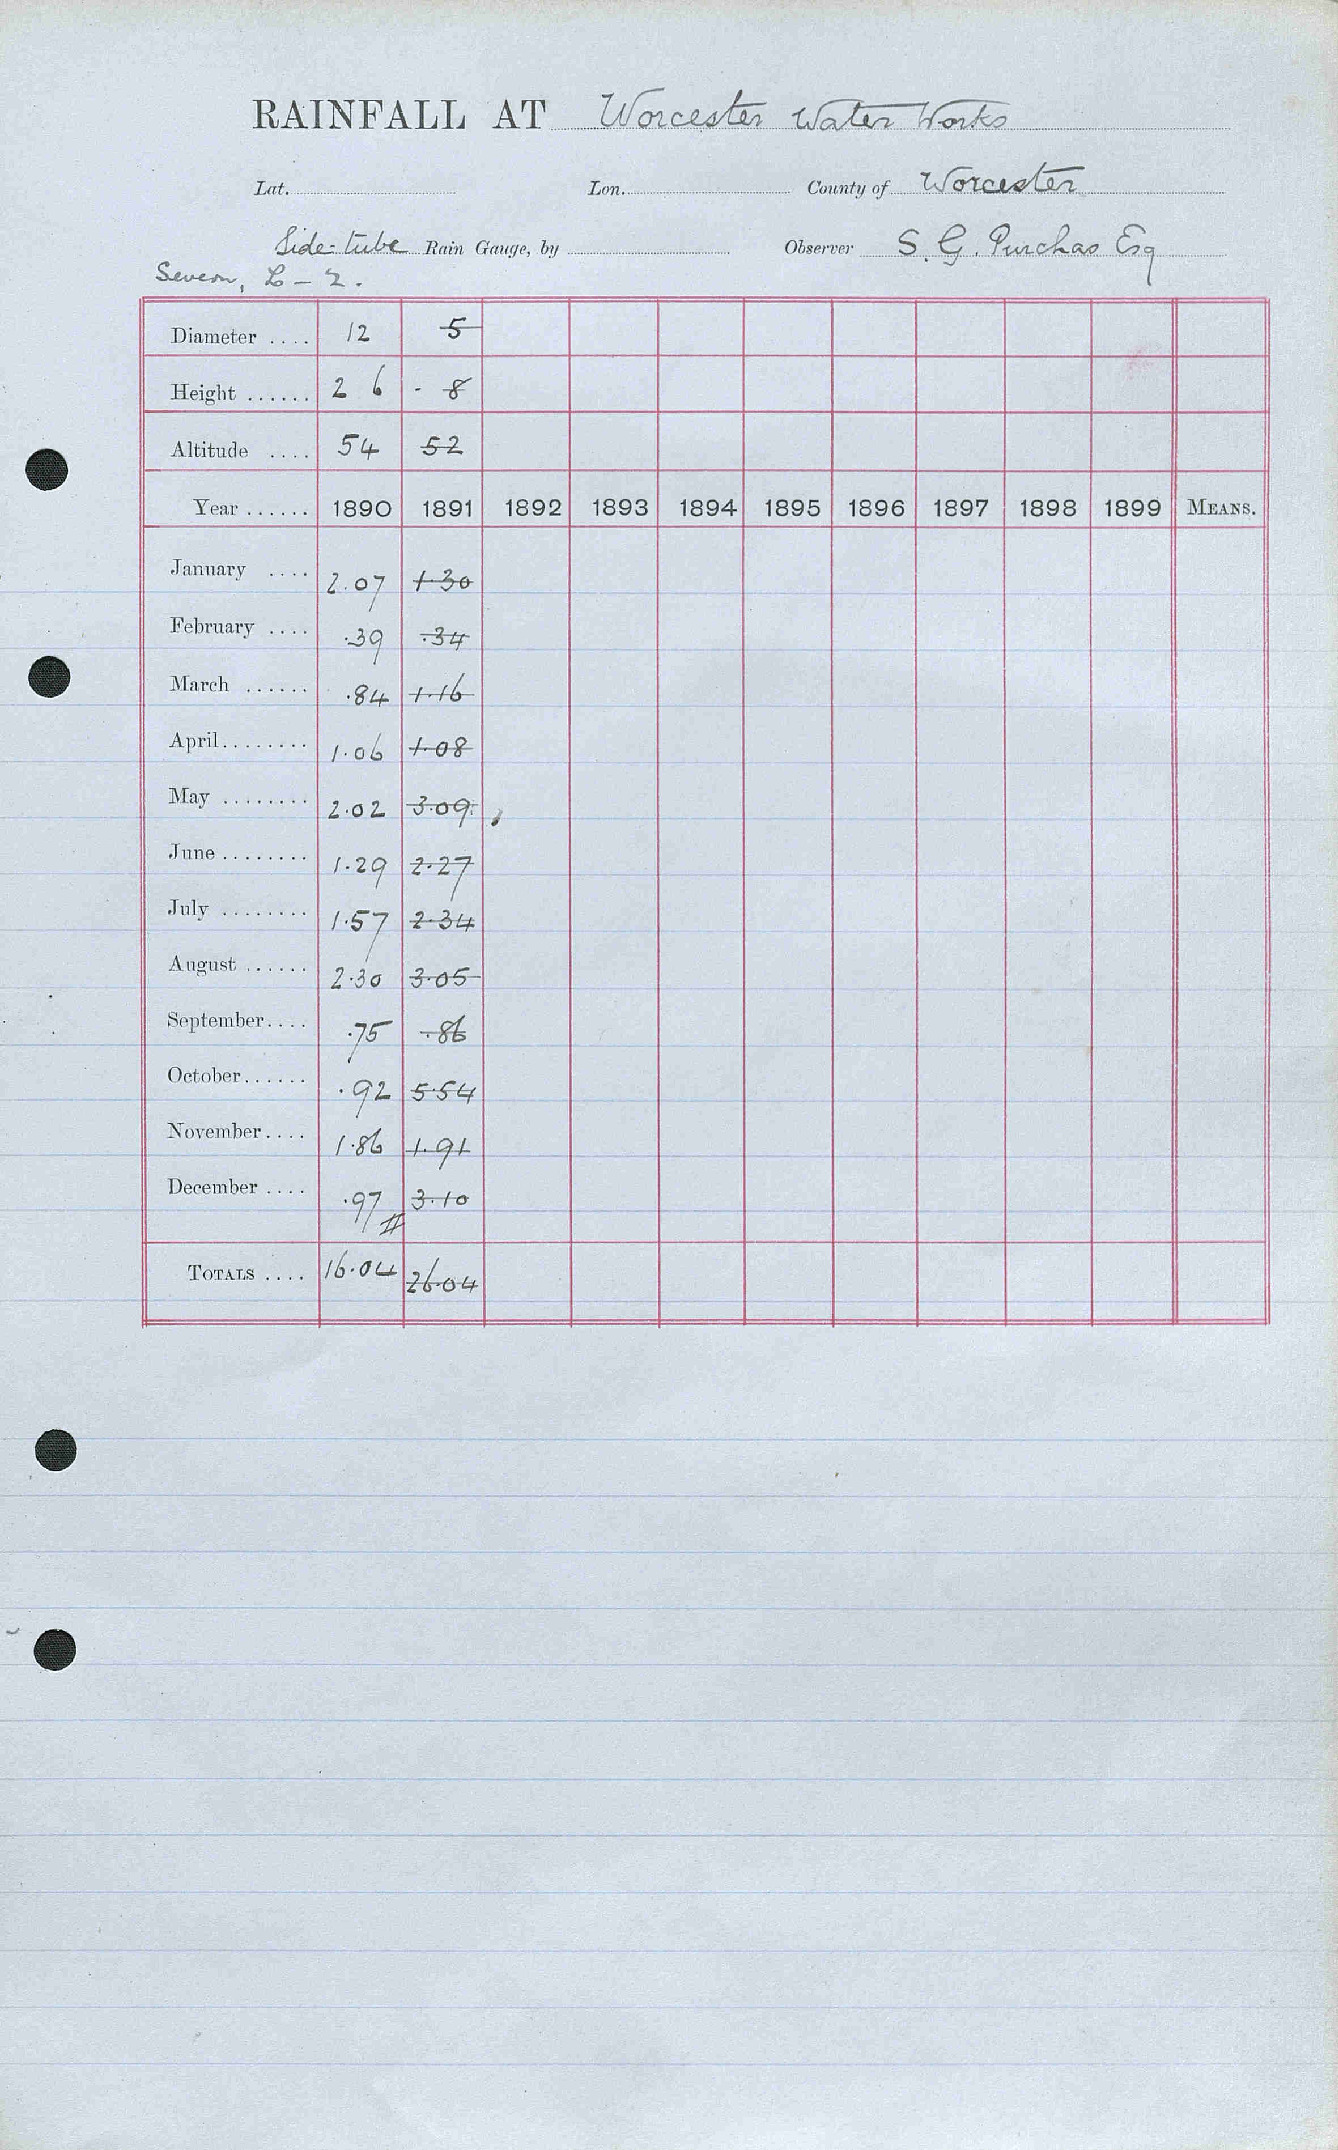 RAINFALL AT Worcester Water Works
Lat. Lon. County of Worcester
Side-tube Rain Gauge, by Observer S. G. Purchas Esq
Severn, L - 2.
Diameter .... 12 5
Height ...... 2 6 - 8
Altitude .... 54 52
Year ...... 1890 1891 1892 1893 1894 1895 1896 1897 1898 1899 MEANS.
January .... 2.07 1.30
February .... .39 .34
March ...... .84 1.16
April........ 1.06 1.08
May ........ 2.02 3.09
June ........ 1.29 2.27
July ........ 1.57 2.34
August ...... 2.30 3.05
September.... .75 .86
October...... .92 5.54
November.... 1.86 1.91
December .... .97 3.10
TOTALS .... 16.04 26.04